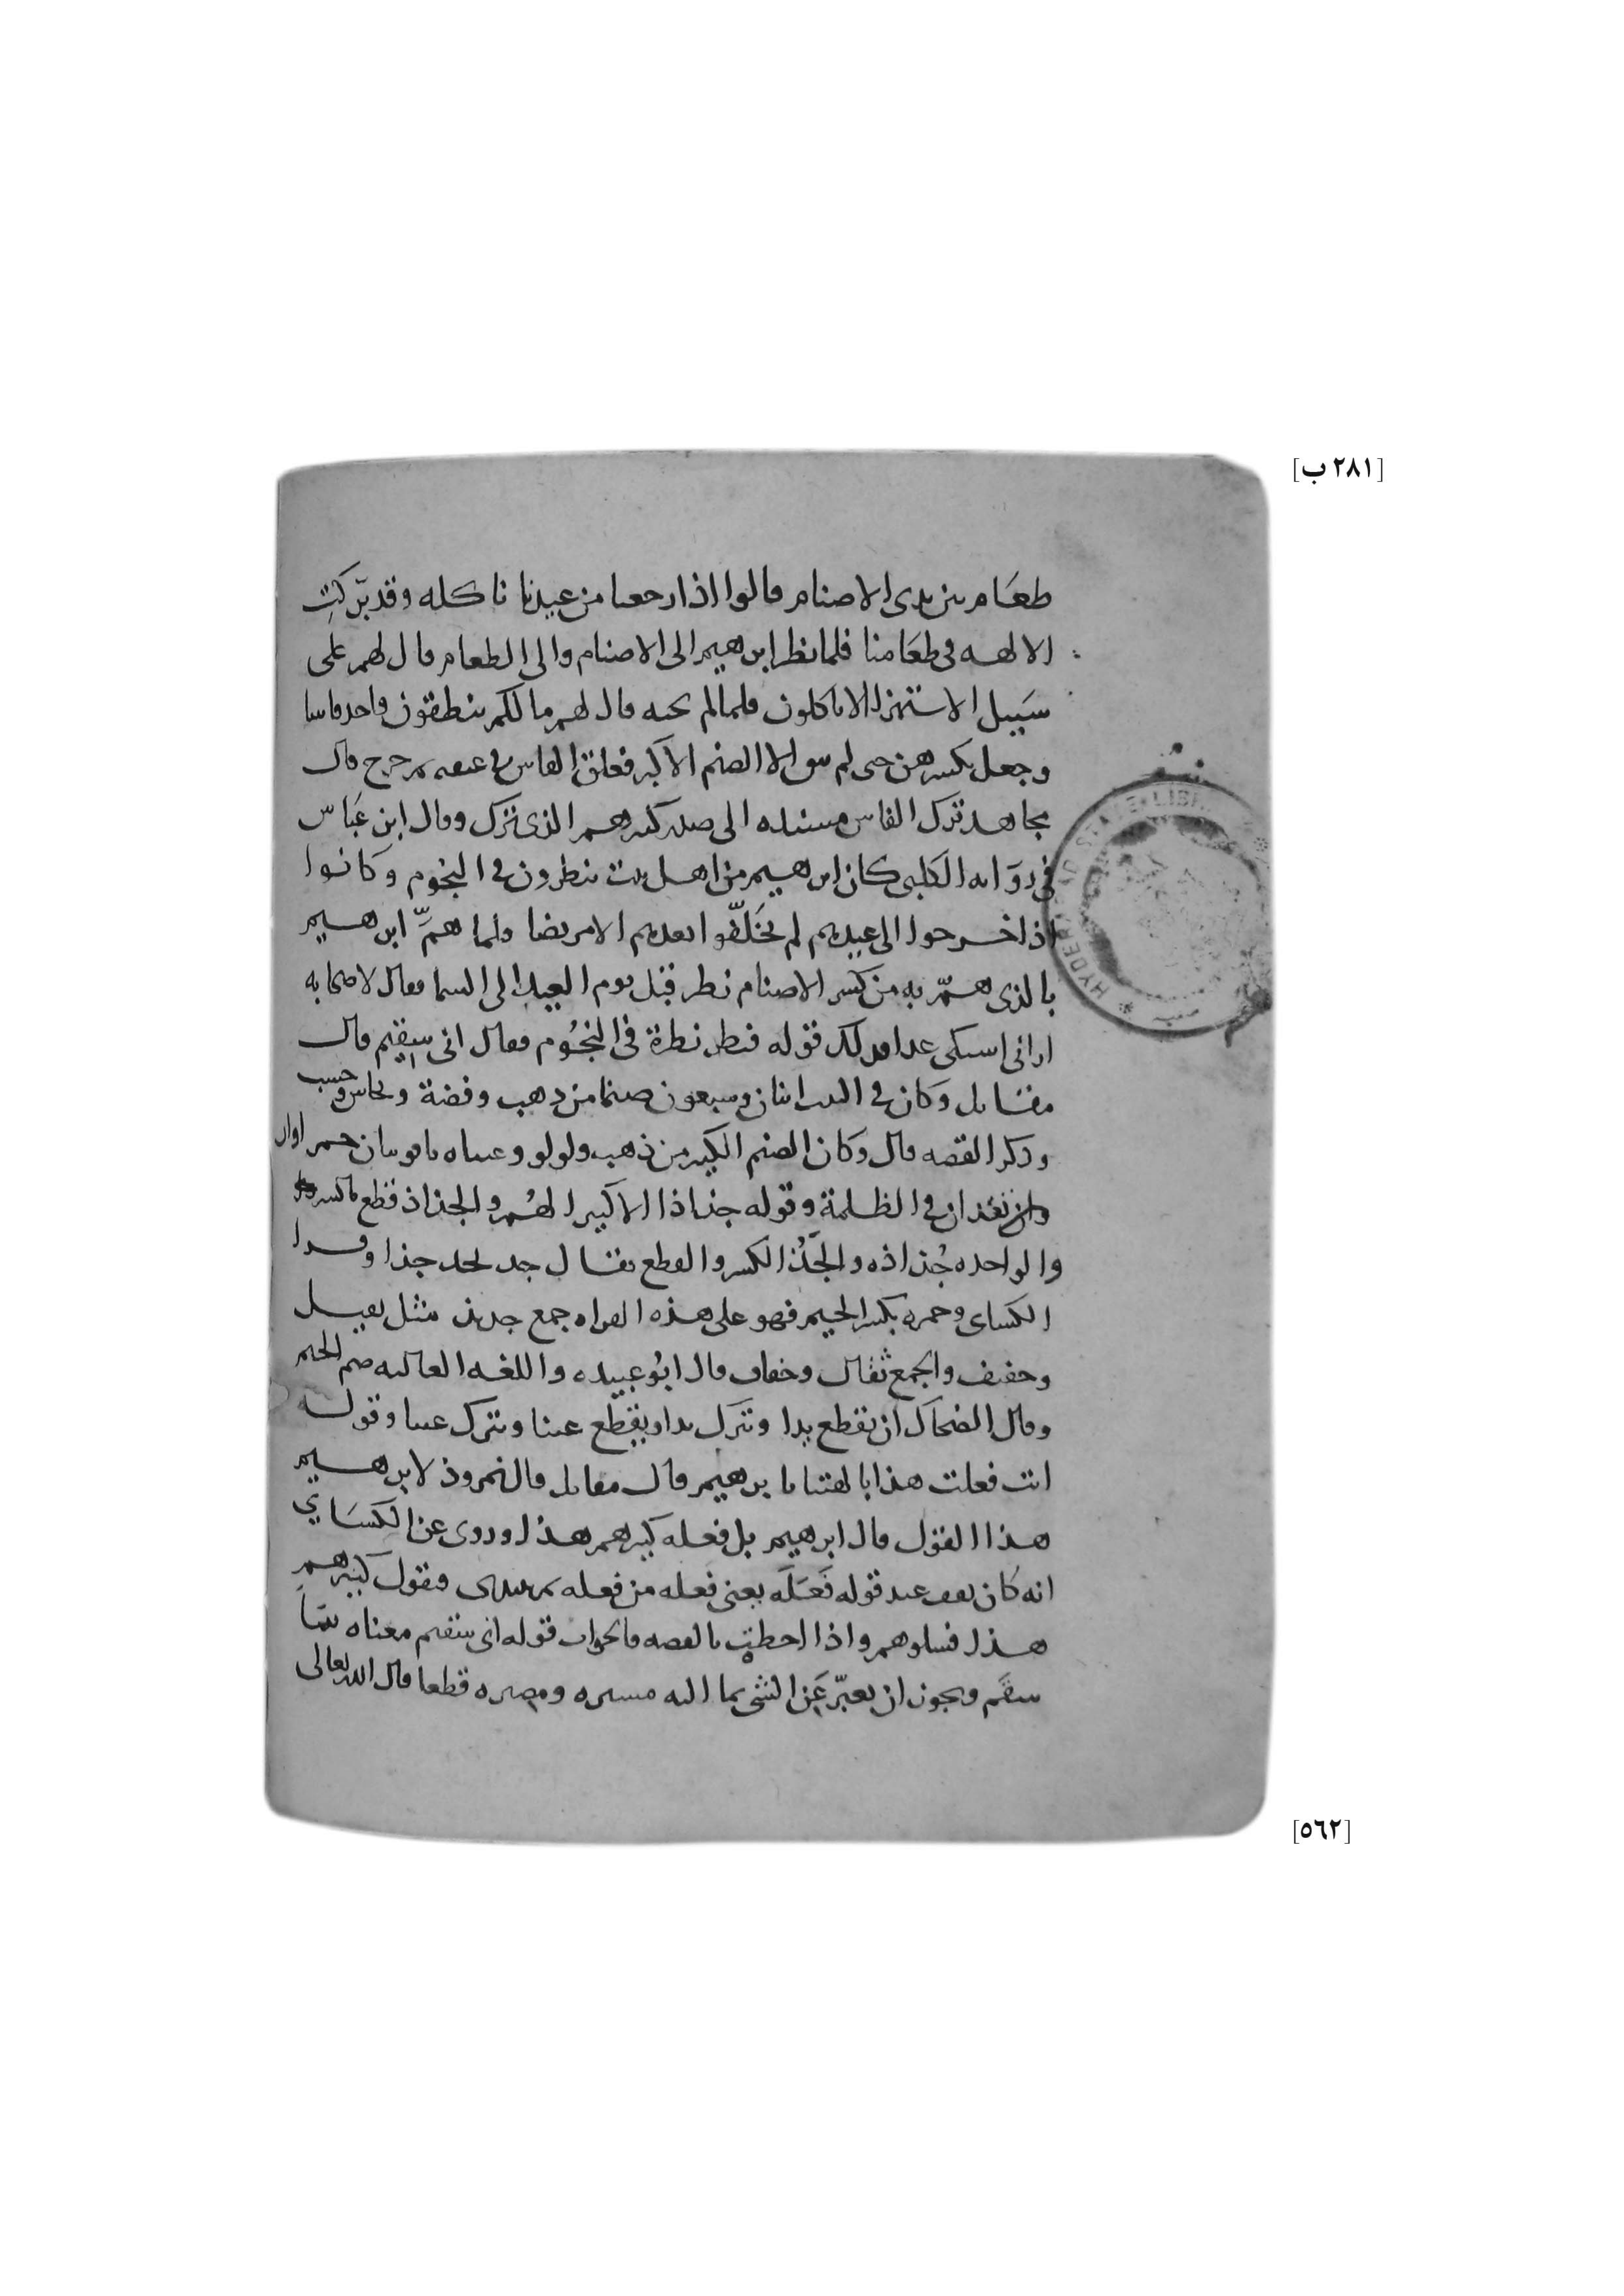 [٢٨١ ب]
طعام بين يدى الاصنام قالوا اذا رجعنا من عيدنا ناكله وقد بركت
الالهه فى طعامنا فلما نظر ابرهيم الى الاصنام والى الطعام قال لهم على
سبيل الاستهزا الا تاكلون فلما لم تجبه قال لهم ما لكم تنطقون واخذ فاسا
وجعل يكسرهن حتى لم يبق الا الصنم الاكبر فعلق الفاس فى عنقه ثم خرج قال
مجاهد ترك الفاس مسنده الى صدر كبيرهم الذى ترك وقال ابن عباس
فى رواية الكلبى كان ابرهيم من اهل بيت ينظرون فى النجوم وكانوا
اذا خرجوا الى عيدهم لم يخلفوا بعدهم الا مريضا ولما همّ ابرهيم
بالذى همّ به من كسر الاصنام نظر قبل يوم العيد الى السما فقال لاصحابه
ارانى اشتكى غدا فذلك قوله فنظر نظرة فى النجوم فقال انى سقيم قال
مقاتل وكان فى البيت اثنان وسبعون صنما من ذهب وفضة ونحاس وخشب
وذكر القصه قال وكان الصنم الكبير من ذهب ولولو وعيناه ياقوتتان حمراوان
تقدان فى الظلمة وقوله جذاذا الا كبيرا لهم والجذاذ قطع ماكسر
والواحده جُذاذه والجَذّ الكسر والقطع يقال جذ يجذ جذا وقرا
الكساى وحمزه بكسر الجيم فهو على هذه القراه جمع جذيذ مثل ثقيل
وخفيف والجمع ثقال وخفاف قال ابو عبيده واللغه العاليه ضم الجيم
وقال الضحاك ان يقطع يدا ويترك يدا ويقطع عينا ويترك عينا وقوله
انت فعلت هذا بالهتنا يا برهيم قال مقاتل قال نمروذ لابرهيم
هذا القول قال ابرهيم بل فعله كبيرهم هذا وروى عن الكساي
انه كان يقف عند قوله فَعَلَه يعنى فعله من فعله ثم يبتدى فيقول كبيرهم
هذا فسلوهم واذا احطت بالقصه فالجواب قوله انى سقيم معناه
سقم ويجوز ان يعبّر عن الشى بما اليه مسيره ومصيره قطعا قال الله تعالى
[٥٦٢]